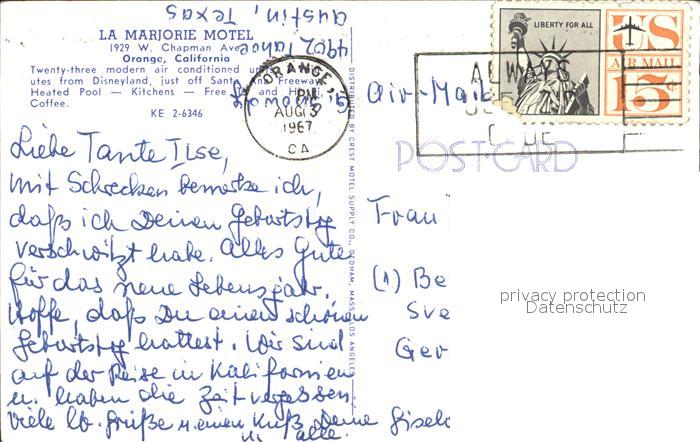 Austin, Texas
LA MARJORIE MOTEL
1929 W. Chapman Ave
Orange, California
Twenty-three modern air conditioned un
utes from Disneyland, just off Santa Ana Freeway
Heated Pool — Kitchens — Free
Coffee.
KE 2-6346
ORANGE,
PM
AUG 3
1967
CA
LIBERTY FOR ALL
US
AIR MAIL
15¢
ALWAYS
USE
Air-Mail
POST CARD
DISTRIBUTED BY CREST MOTEL SUPPLY CO., DEDHAM, MASS. LOS ANGELES
Liebe Tante Ilse,
mit Schrecken bemerke ich,
daß ich Deinen Geburtstag
verschwitzt habe. Alles Gute
für das neue Lebensjahr.
Hoffe, daß Du einen schönen
Geburtstag hattest. Wir sind
auf der Reise in Kalifornien
u. haben die Zeit vergessen.
Viele lb. Grüße u. einen Kuß Deine Gisel
alle.
Frau
(1) Be
Sve
Ger
privacy protection
Datenschutz